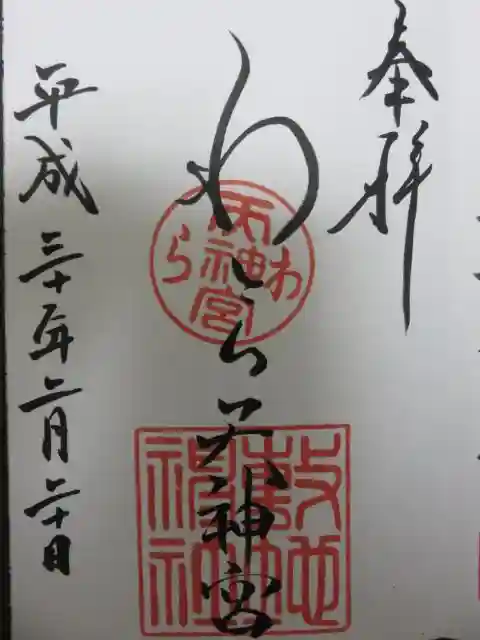 奉拝
わら天神宮
わら天神宮
敷地
神社
平成三十年二月二十日